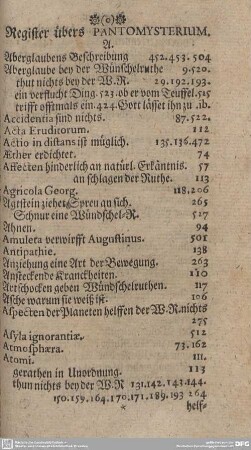 (o)
Register übers PANTOMYSTERIUM.
A.
Aberglaubens Beschreibung 452.453.504
Aberglaube bey der Wünschelruthe 9.520.
thut nichts bey der W.R. 29.192.193.
ein verflucht Ding 523. ob er vom Teuffel 515
trifft offtmals ein 424. Gott lässet ihn zu .ib.
Accidentia sind nichts. 87.522.
Acta Eruditorum. 112
Actio in distans ist müglich. 135.136.472
Æther erdichtet. 74
Affecten hinderlich an natürl. Erkäntnis. 57
an schlagen der Ruthe. 113
Agricola Georg. 118.206
Agtstein ziehet Spreu an sich. 265
Schnur eine Wündschel-R. 527
Ahnen. 94
Amuleta verwirfft Augustinus. 501
Antipathie. 138
Anziehung eine Art der Bewegung. 263
Ansteckende Kranckheiten. 110
Artschocken geben Wündschelruthen. 117
Asche warum sie weiß ist. 106
Aspecten der Planeten helffen der W.R. nichts
275
Asyla ignorantiæ. 512
Atmosphæra. 73.162
Atomi. 111.
gerathen in Unordnung. 113
thun nichts bey der W.R 131.142.143.144.
150.159.164.170.171.189.193 264
* helf-